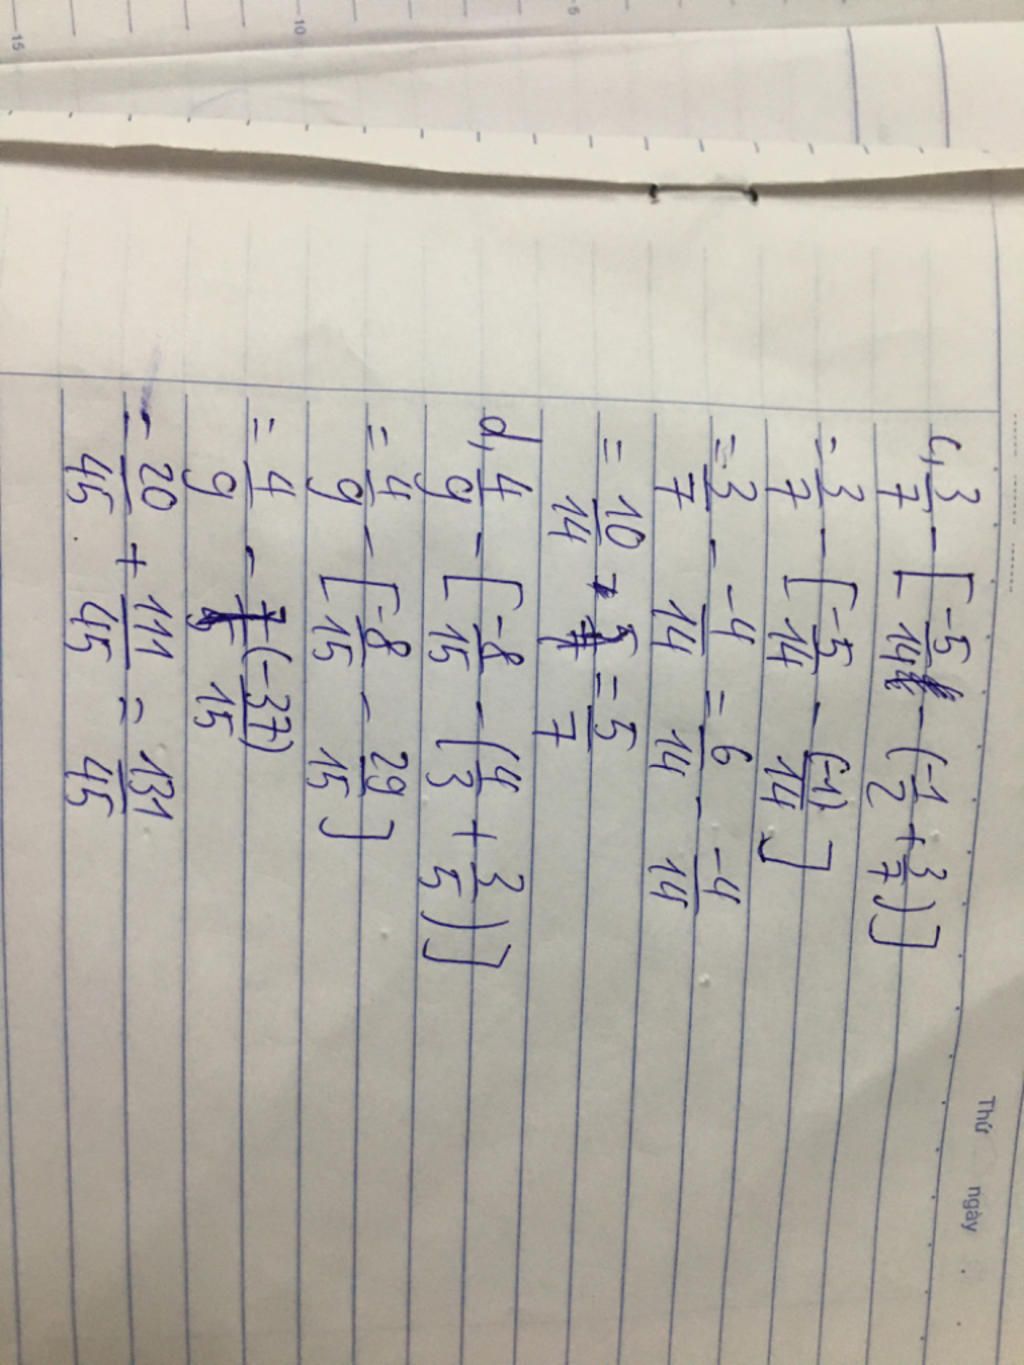 Thứ ngày
c, 3/7 - [-5/14 - (-1/2 + 3/7)]
= 3/7 - [-5/14 - (-1)/14]
= 3/7 - -4/14 = 6/14 - -4/14
= 10/14 = 5/7
d, 4/9 - [-8/15 - (4/3 + 3/5)]
= 4/9 - [-8/15 - 29/15]
= 4/9 - (-37/15)
= 20/45 + 111/45 = 131/45
5
10
15